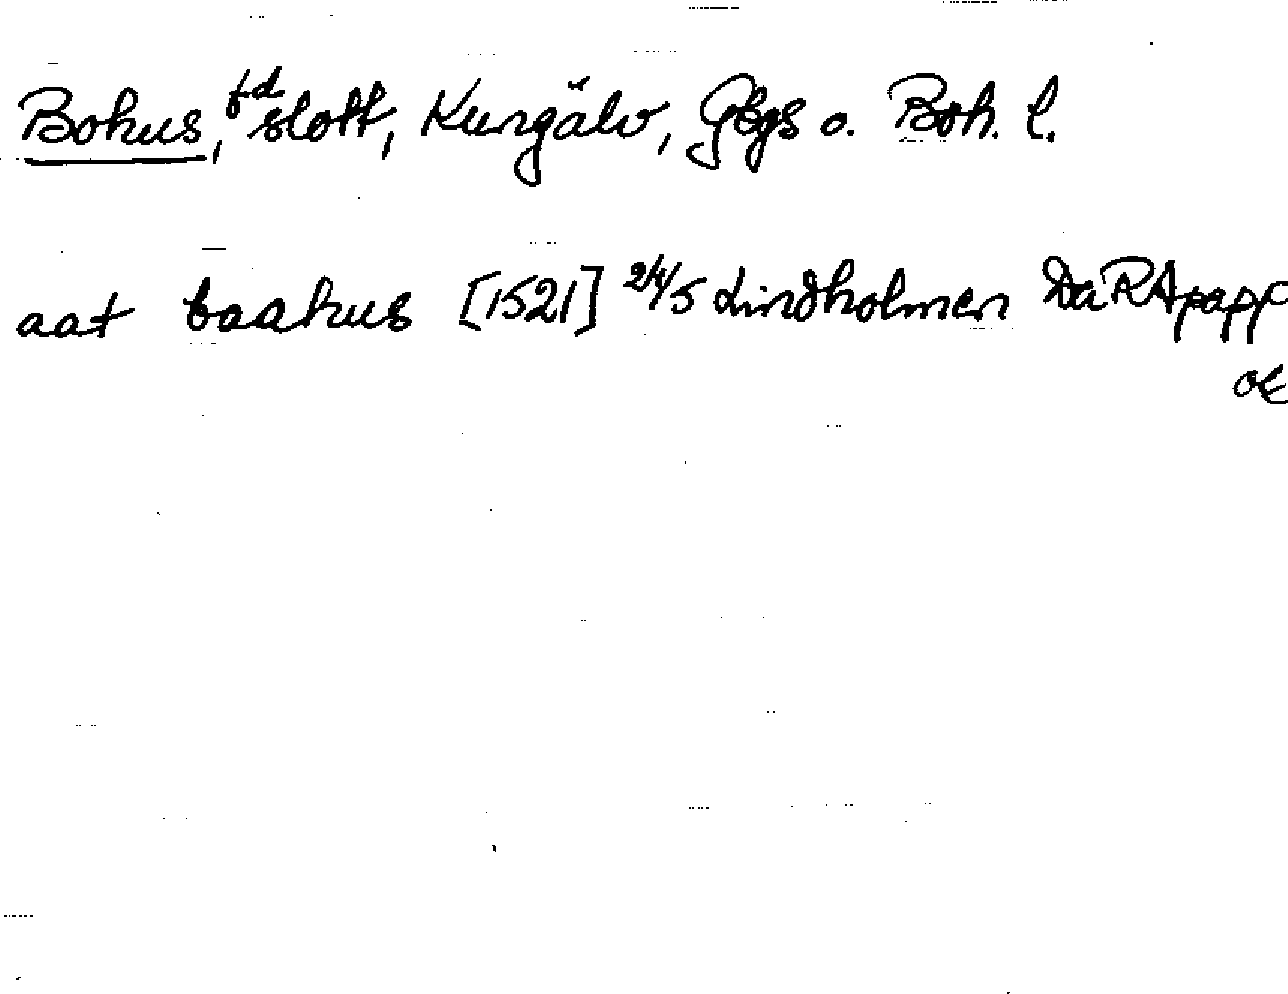 Bohus, fd slott, Kungälv, Gbgs o. Boh. l.
aat baahus [1521] 24/5 Lindholmen DaRApapp